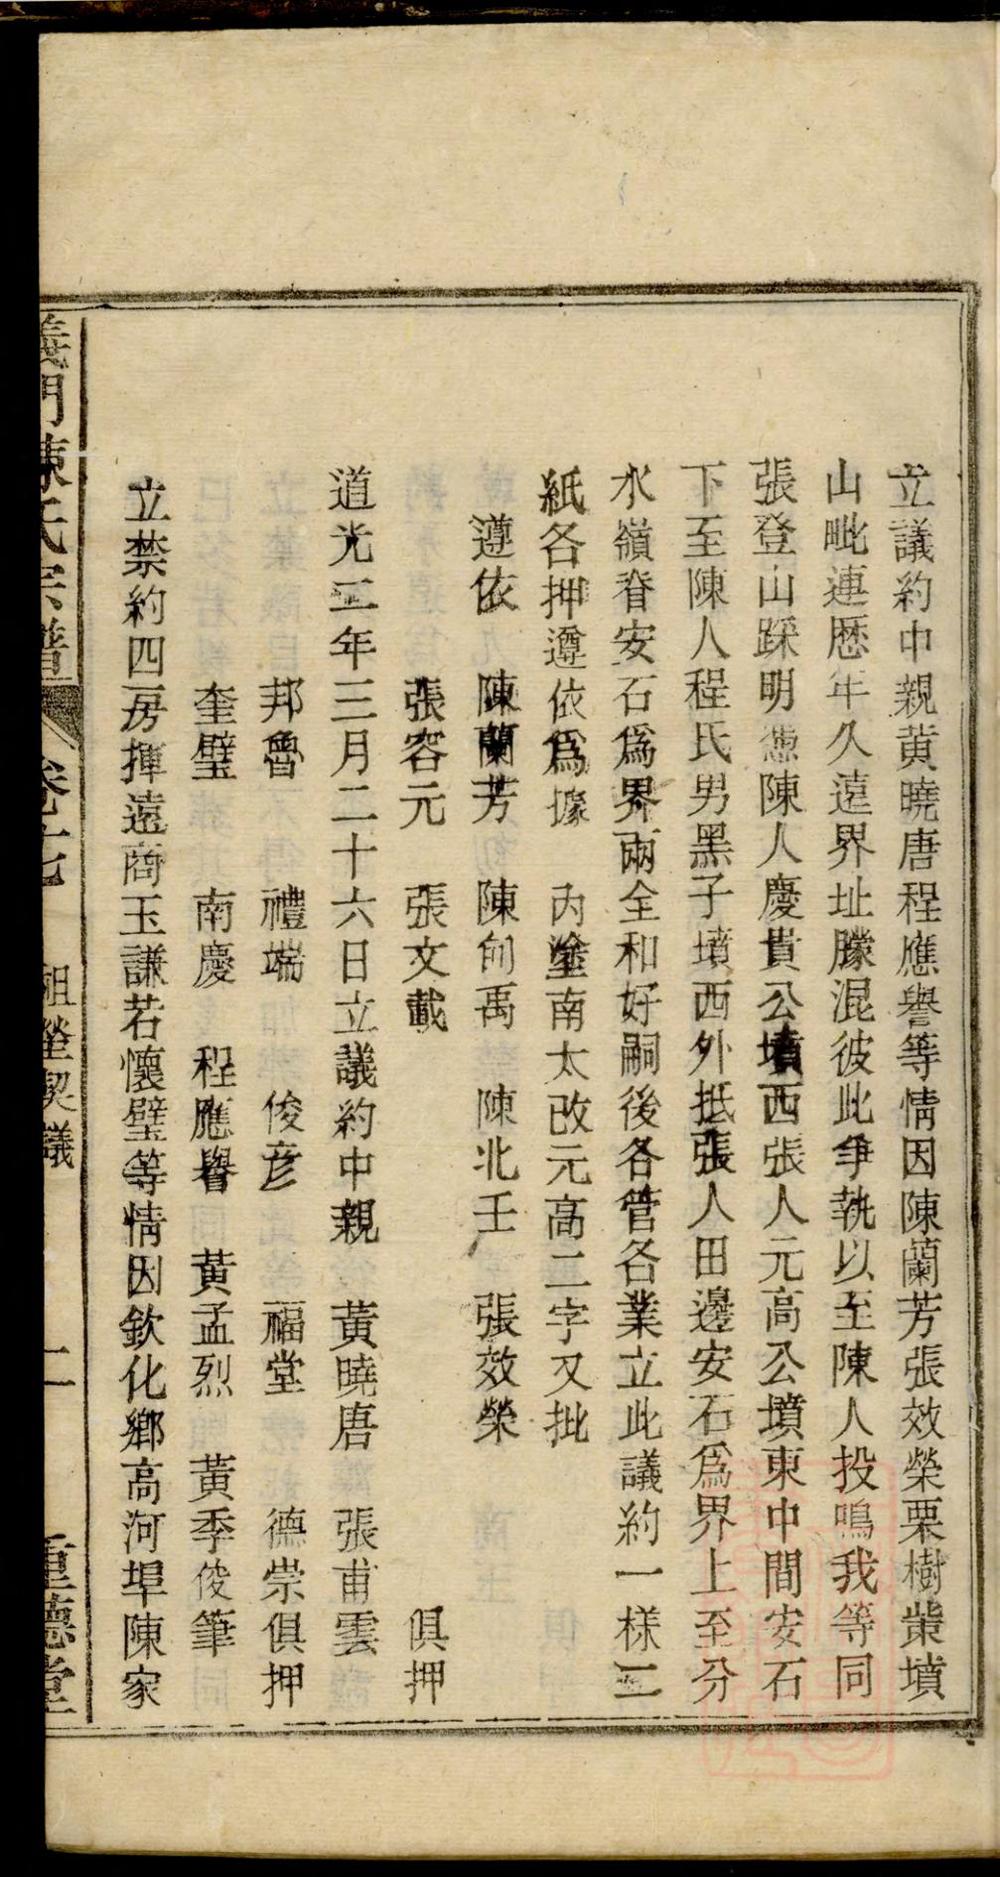 立議約中親黄曉唐程應譽等情因陳蘭芳張效榮栗樹岽墳
山毗連歷年久遠界址朦混彼此爭執以至陳人投鳴我等同
張登山踩明憑陳人慶貴公墳西張人元高公墳東中間安石
下至陳人程氏男黑子墳西外抵張人田邊安石爲界上至分
水嶺脊安石爲界兩全和好嗣後各管各業立此議約一樣二
紙各押遵依爲據 內塗南太改元高二字又批
遵依 陳蘭芳 陳勻禹 陳北壬 張效榮
張容元 張文載 俱押
道光三年三月二十六日立議約中親 黄曉唐 張甫雲
邦魯 禮端 俊彦 福堂 德崇俱押
奎璧 南慶 程應譽 黄孟烈 黄季俊筆
立禁約四房揮遠商玉謙若懷璧等情因欽化鄉高河埠陳家
義門陳氏宗譜 卷七 祖塋契議 二 重德堂